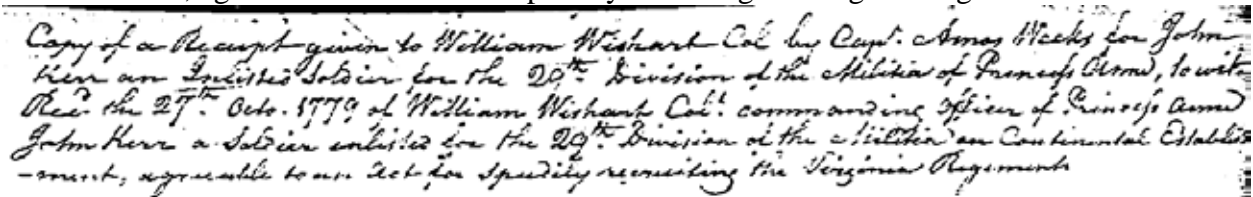 Copy of a Receipt given to William Wishart Col by Capt. Amos Weeks for John
Kerr an Inlisted Soldier for the 29th Division of the Militia of Princess Anne, to wit
Recd the 27th Octo. 1779 of William Wishart Col. commanding officer of Princess Anne
John Kerr a Soldier enlisted for the 29th Division of the Militia on Continental Establish
-ment, agreeable to an Act for Speedily recruiting the Virginia Regiments